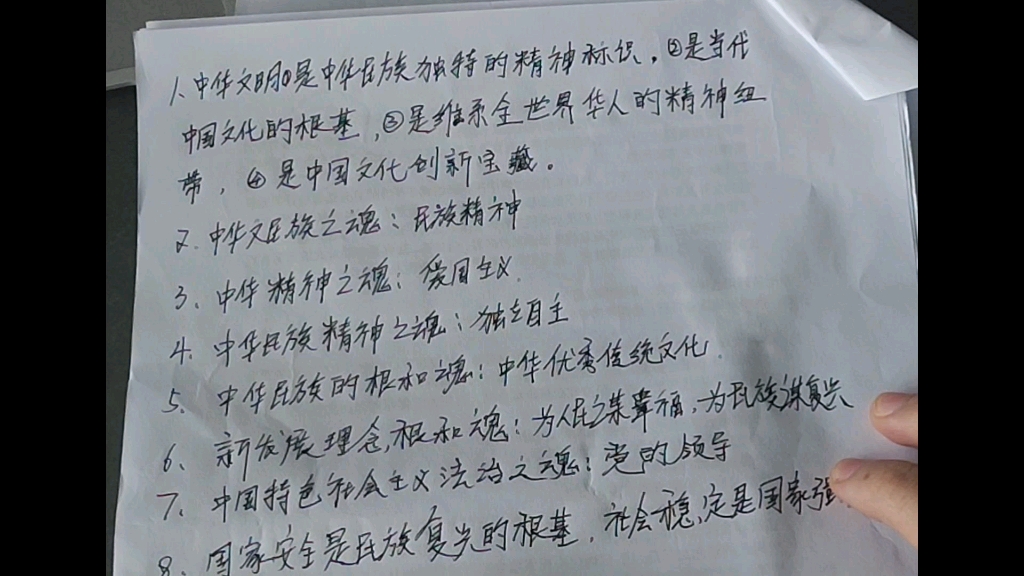 1、中华文明①是中华民族独特的精神标识。②是当代
中国文化的根基,③是维系全世界华人的精神纽
带,④是中国文化创新宝藏。
2、中华文民族之魂:民族精神
3、中华精神之魂:爱国主义.
4、中华民族精神之魂:独立自主
5、中华民族的根和魂:中华优秀传统文化.
6、新发展理念,根和魂:为人民之谋幸福,为民族谋复兴
7、中国特色社会主义法治之魂:党的领导
8、国家安全是民族复兴的根基,社会稳定是国家强